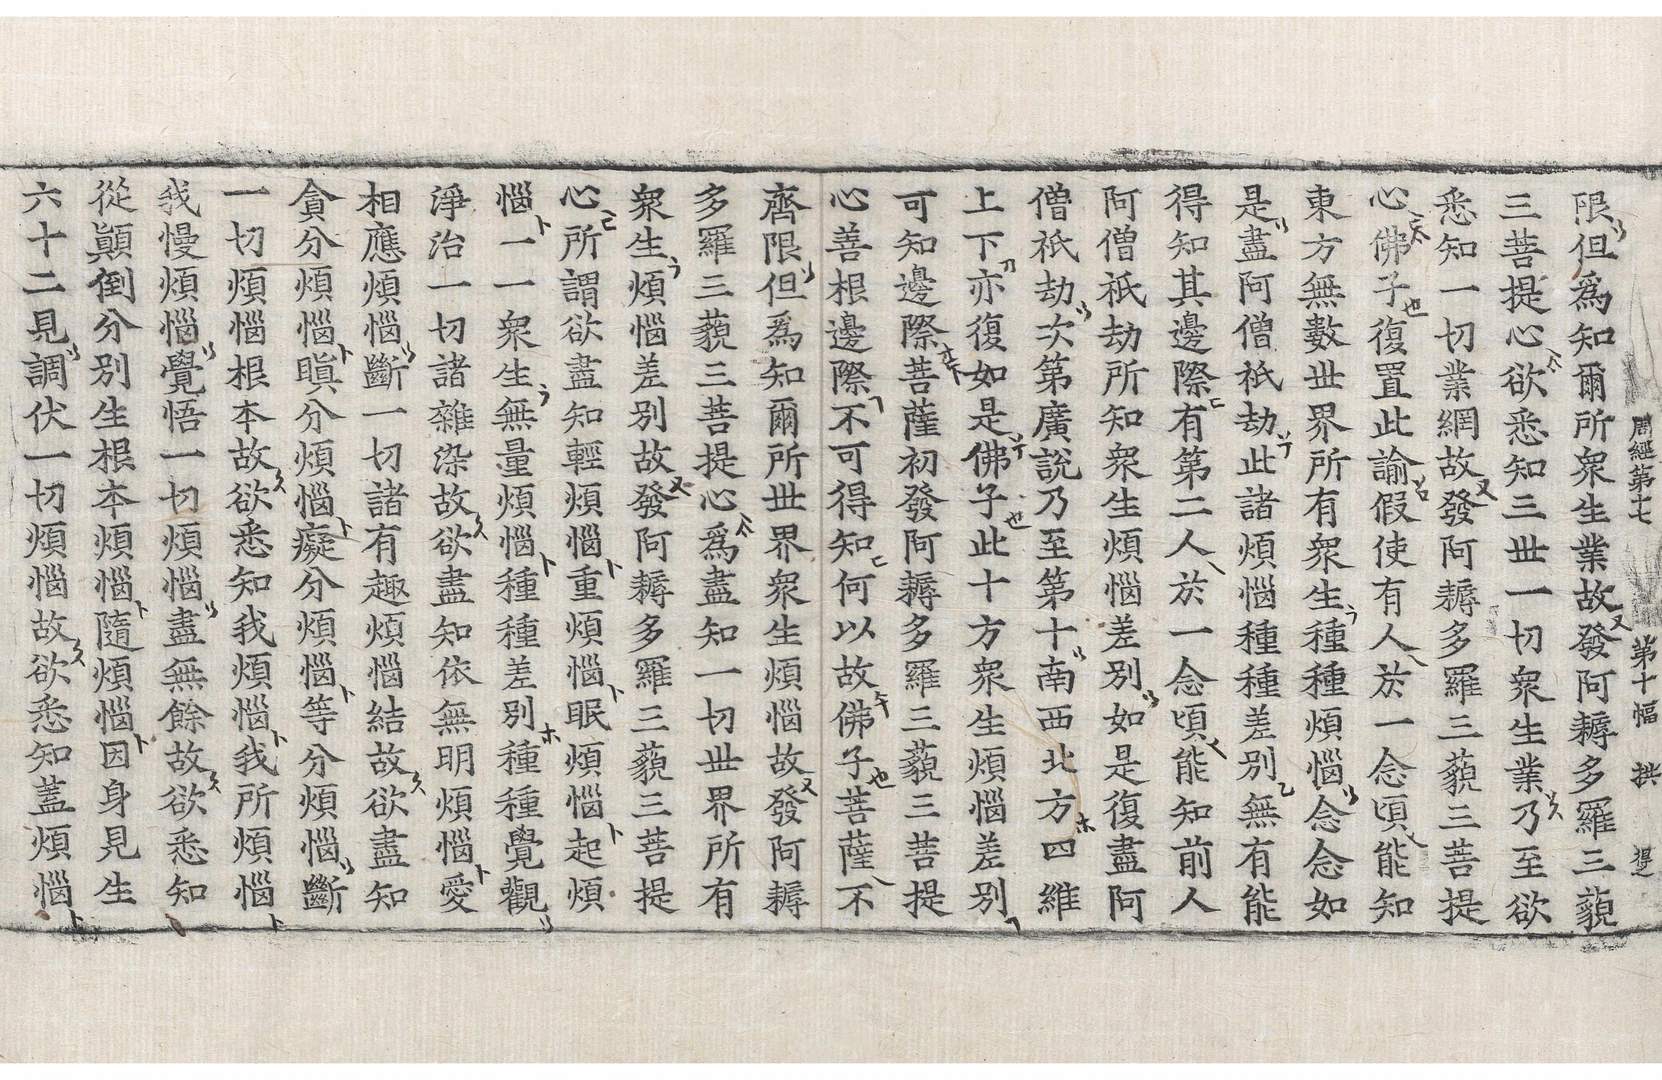 周經第十七 第十幅 拱 得
限但爲知爾所衆生業故發阿耨多羅三藐
三菩提心欲悉知三世一切衆生業乃至欲
悉知一切業網故發阿耨多羅三藐三菩提
心佛子復置此諭假使有人於一念頃能知
東方無數世界所有衆生種種煩惱念念如
是盡阿僧祇劫此諸煩惱種種差別無有能
得知其邊際有第二人於一念頃能知前人
阿僧祇劫所知衆生煩惱差別如是復盡阿
僧祇劫次第廣說乃至第十南西北方四維
上下亦復如是佛子此十方衆生煩惱差別
可知邊際菩薩初發阿耨多羅三藐三菩提
心善根邊際不可得知何以故佛子菩薩不
齊限但爲知爾所世界衆生煩惱故發阿耨
多羅三藐三菩提心爲盡知一切世界所有
衆生煩惱差別故發阿耨多羅三藐三菩提
心所謂欲盡知輕煩惱重煩惱眠煩惱起煩
惱一一衆生無量煩惱種種差別種種覺觀
淨治一切諸雜染故欲盡知依無明煩惱愛
相應煩惱斷一切諸有趣煩惱結故欲盡知
貪分煩惱瞋分煩惱癡分煩惱等分煩惱斷
一切煩惱根本故欲悉知我煩惱我所煩惱
我慢煩惱覺悟一切煩惱盡無餘故欲悉知
從顚倒分別生根本煩惱隨煩惱因身見生
六十二見調伏一切煩惱故欲悉知蓋煩惱